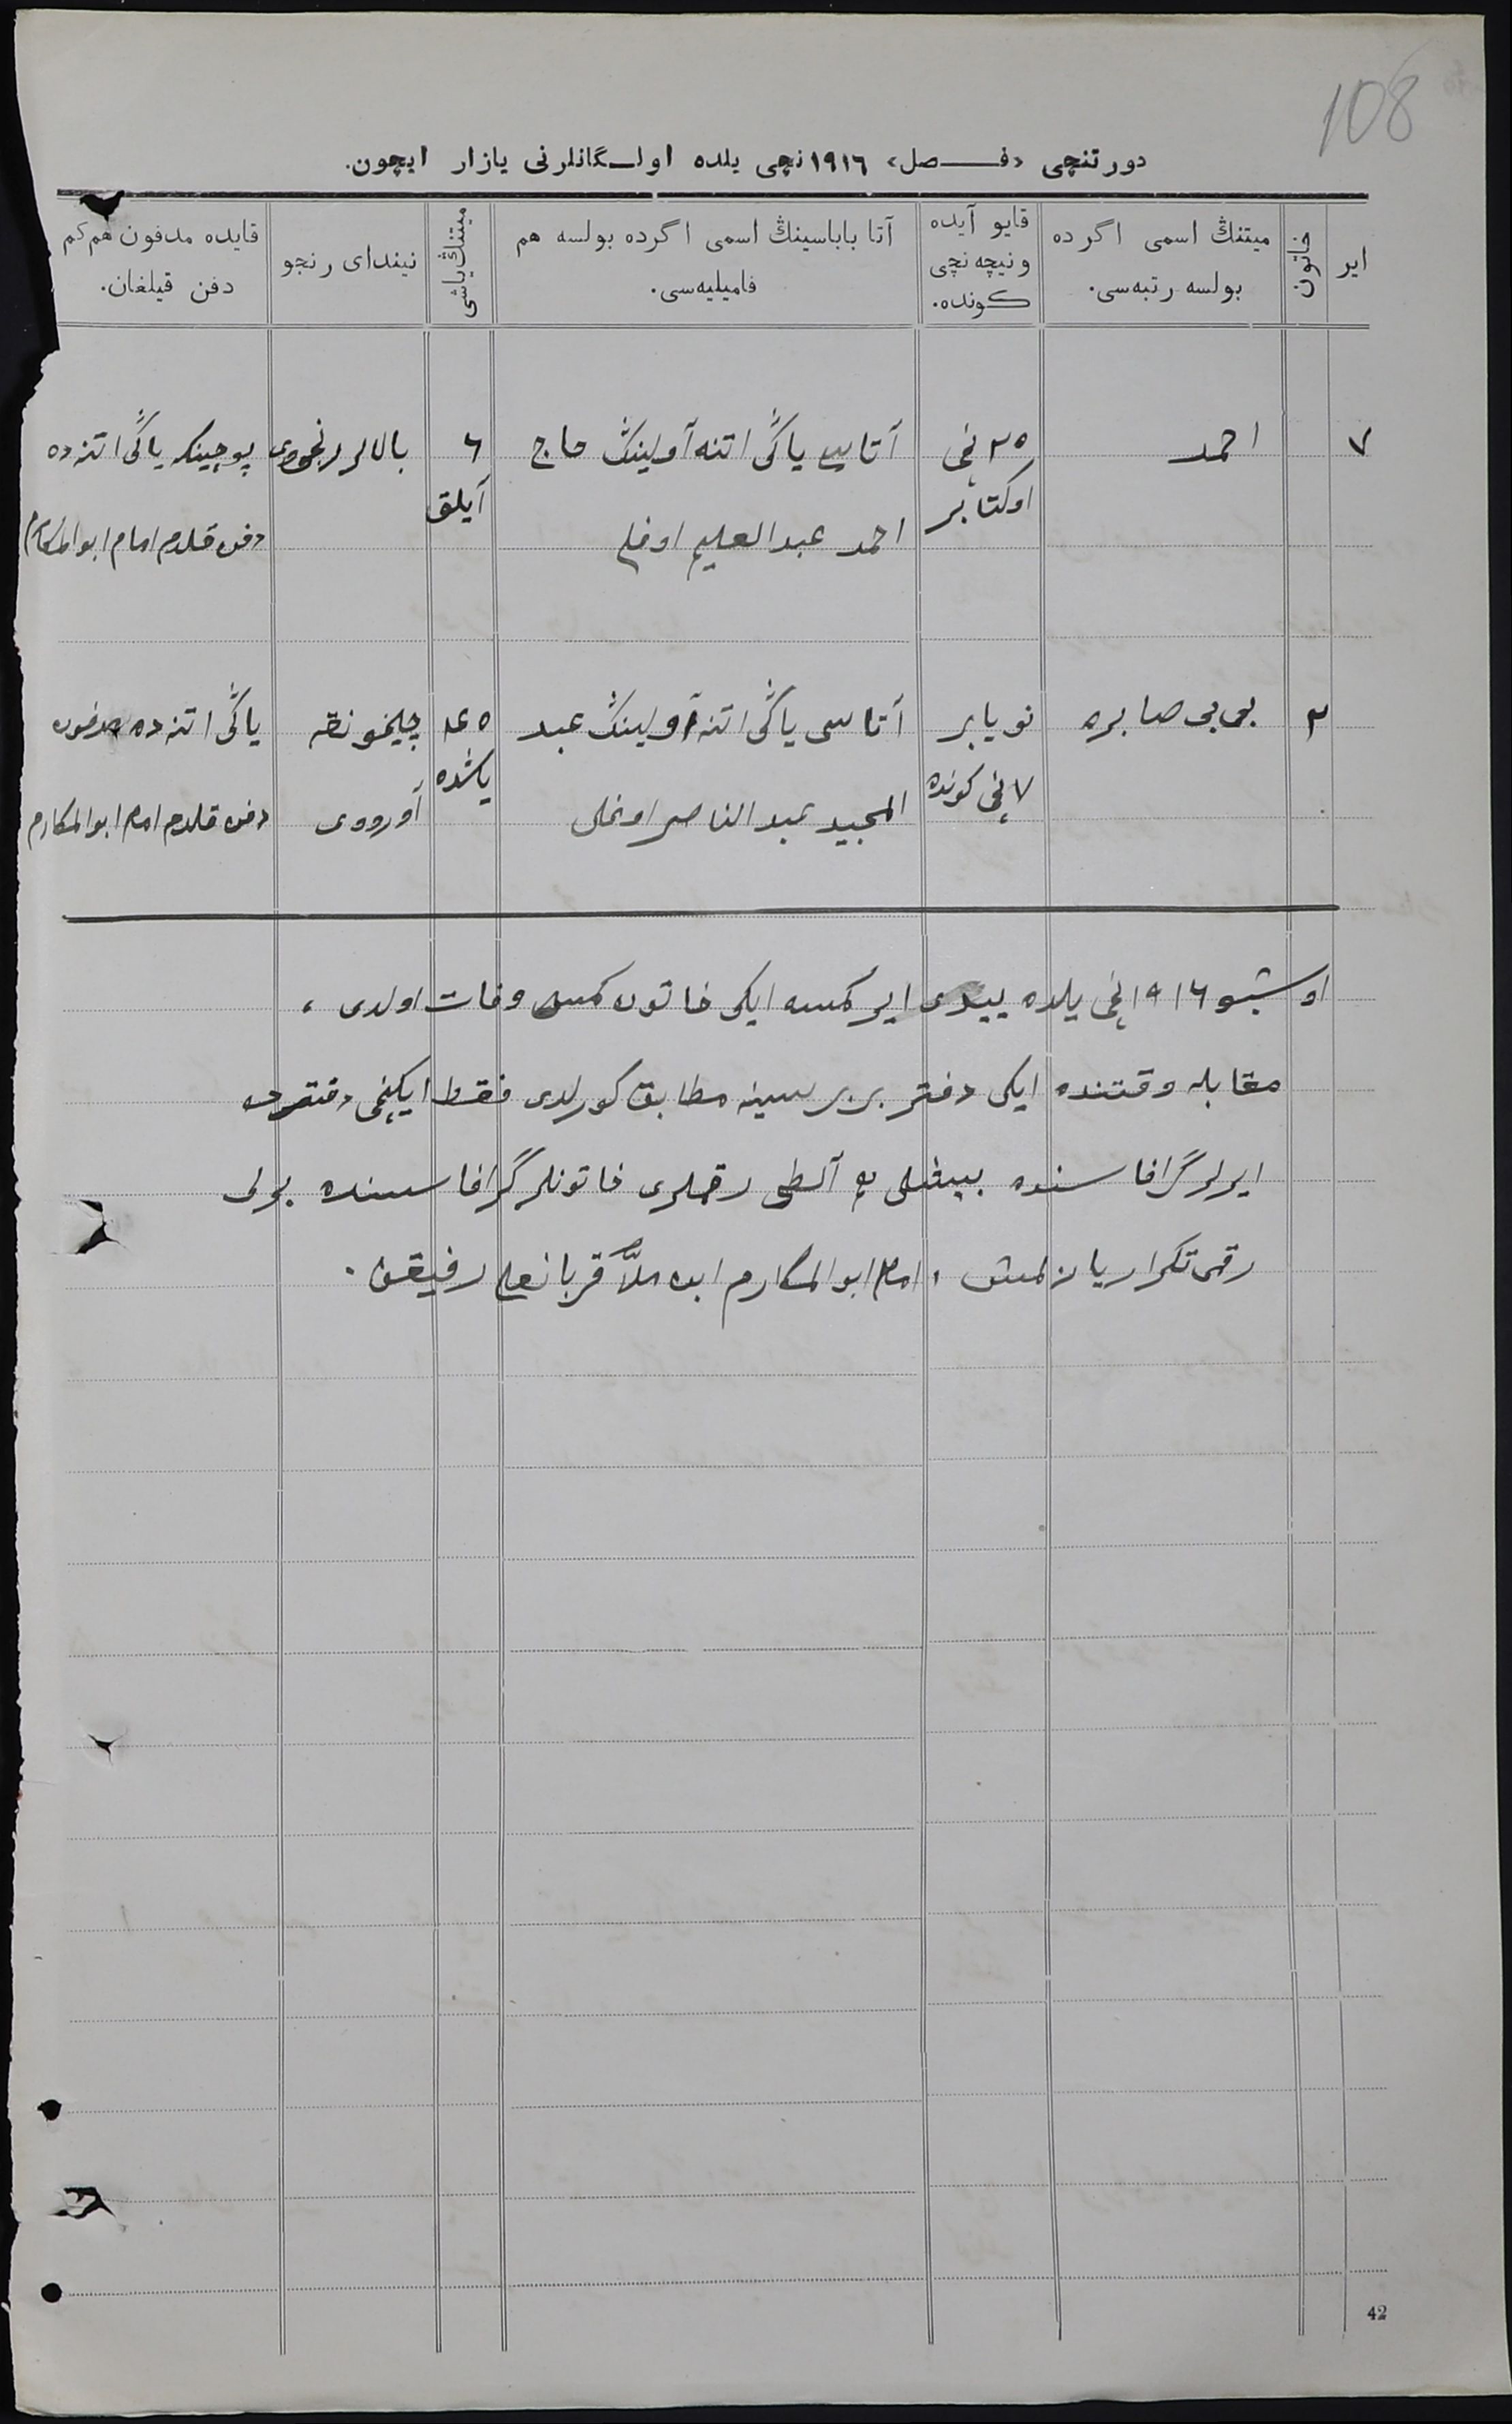 108
دورتنچی «فصل» ١٩١٦نچی یلده اولگانلرنی یازار ایچون.
ایر
خاتون
میتنڭ اسمی اگرده
بولسه رتبه‌سی.
قایو آیده
ونیچه نچی
کونده.
آتا باباسینڭ اسمی اگرده بولسه هم
فامیلیه‌سی.
میتنڭ یاشی
نیندای رنجو
قایده مدفون هم کم
دفن قیلغان.
٧
احمد
٢٥ نچی
اوکتابر
آتاسی یاڭی اتنه آولینڭ حاج
احمد عبدالعلیم اوغلی
٦
آیلق
بالالر رنجوی
پوچینکه یاڭی اتنه ده
دفن قلدم امام ابوالمکارم
٢
بی بی صابره
نویابر
٧ نچی کونده
آتاسی یاڭی اتنه آولینڭ عبد
المجید عبدالناصر اوغلی
٤٥
یاشده
آوروی
یاڭی اتنه ده مدفون
دفن قلدم امام ابوالمکارم
اوشبو ١٩١٦نچی یلده ییدی ایر کمسه ایکی خاتون کمسه وفات اولدی ،
مقابله وقتنده ایکی دفتر بر برسینه مطابق کورلدی فقط ایکنچی دفترده
ایرلر گرافاسنده بیشلی آلطی رقملری خاتونلر گرافاسنده بولی
رقمی تکرار یازلمش ، امام ابوالمکارم ابن ملّا قربانعلی رفیقی .
42